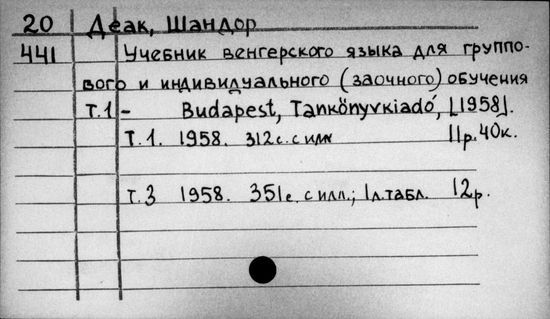 20 Деак, Шандор
441 Учебник венгерского языка для группо-
вого и индивидуального (заочного) обучения
Т.1- Budapest, Tankönyvkiadó, [1958].
Т.1. 1958. 312с. с илл 11р.40к.
Т.3 1958. 351с. с илл.; 1л.табл. 12р.